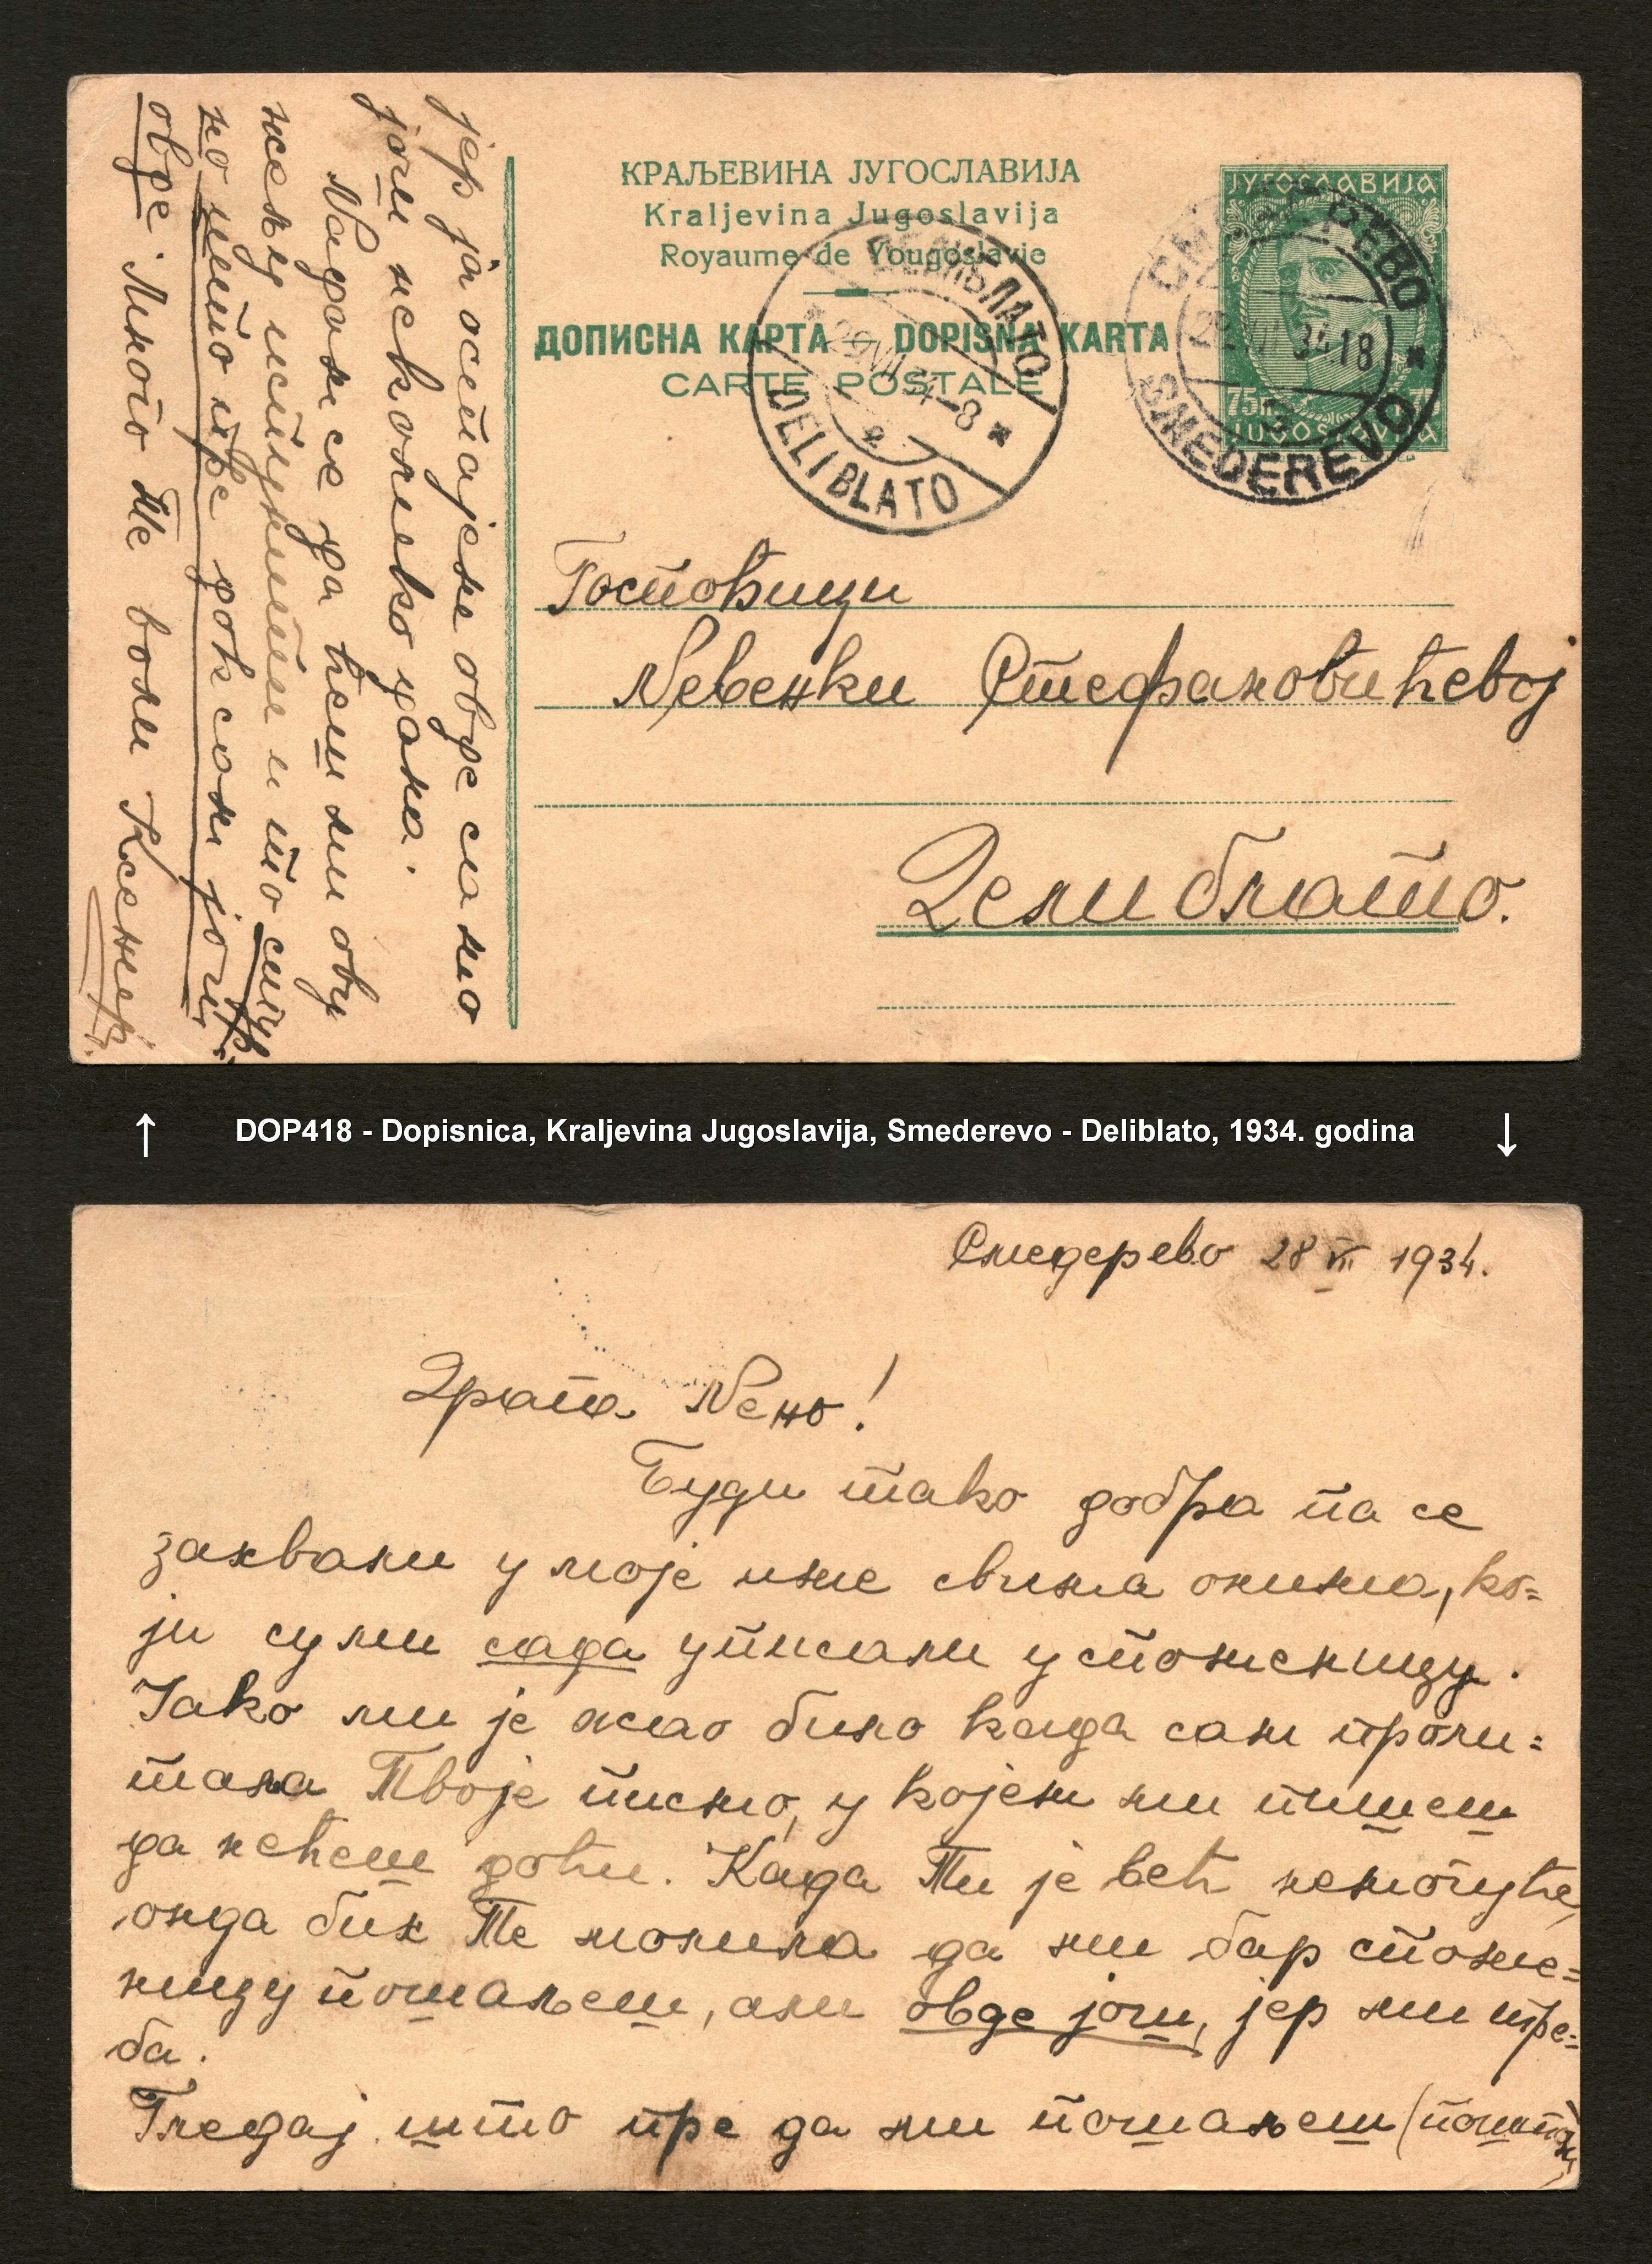 КРАЉЕВИНА ЈУГОСЛАВИЈА
Kraljevina Jugoslavija
Royaume de Yougoslavie
ДОПИСНА КАРТА - DOPISNA KARTA
CARTE POSTALE
ЈУГОСЛАВИЈА
75 75
JUGOSLAVIJA
СМЕДЕРЕВО
34 18
SMEDEREVO
ДЕЛИБЛАТО
29 VII 34-8
DELIBLATO
Госпођици
Невенки Стефановићевој
Делиблато.
јер ја остајем овде само
још неколико дана.
Надам се да ћеш ми ову
жељу испунити и то сигур=
но што пре док сам још
овде. Много те воли Ксенија.
DOP418 - Dopisnica, Kraljevina Jugoslavija, Smederevo - Deliblato, 1934. godina
Смедерево 28 VII 1934.
Драга Нено!
Буди тако добра па се
захвали у моје име свима онима, ко=
ји су ми сада уписали у споменицу.
Јако ми је жао било када сам прочи=
тала Твоје писмо, у којем ми пишеш
да нећеш доћи. Када Ти је већ немогуће,
онда бих Те молила да ми бар споме=
ницу пошаљеш, али овде још, јер ми тре=
ба.
Гледај што пре да ми пошаљеш (поштом)